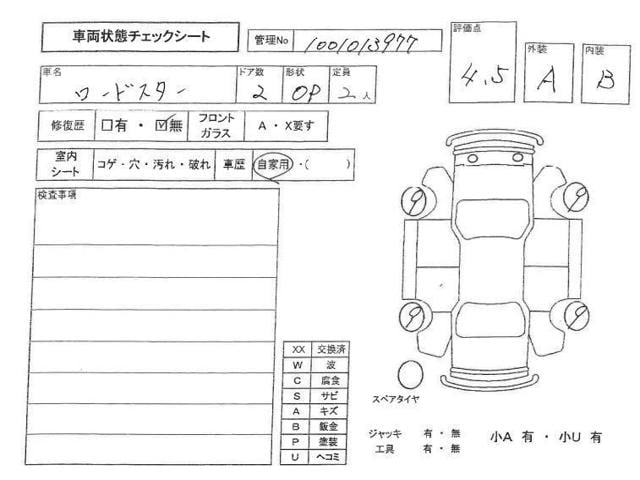 車両状態チェックシート 管理No 1001013977
評価点 4.5 外装 A 内装 B
車名 ロードスター ドア数 2 形状 OP 定員 2人
修復歴 □有・☑無 フロントガラス A・X要す
室内シート コゲ・穴・汚れ・破れ 車歴 自家用・( )
検査事項
9 9
9 9
XX 交換済
W 波
C 腐食
S サビ
A キズ
B 鈑金
P 塗装
U ヘコミ
スペアタイヤ
ジャッキ 有・無
工具 有・無
小A 有・小U 有